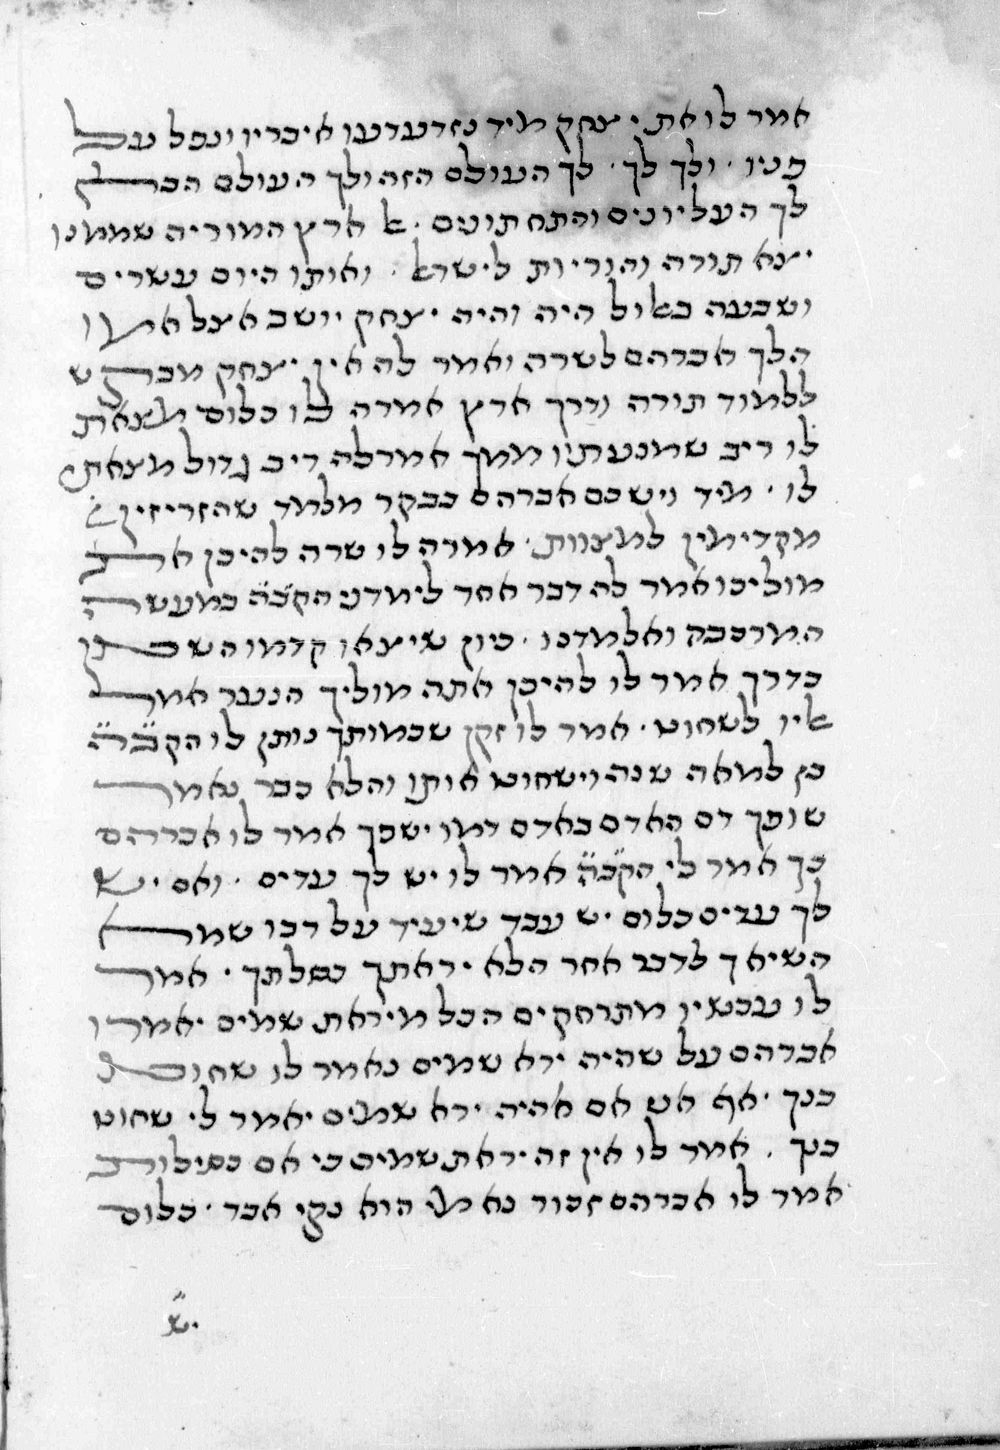 אמר לו את יצחק מיד נזדעדעו איבריו ונפל על
פניו · ולך לך · לך העולם הזה ולך העולם הבא
לך העליונים והתחתונים · אל ארץ המוריה שממנו
יצא תורה והוריות לישראל · ואותו היום עשרים
ושבעה באלול היה והיה יצחק יושב אצל אמו
הלך אברהם לשרה ואמר לה אין יצחק מבקש
ללמוד תורה ודרך ארץ אמרה לו כלום מצאת
לו ריב שמנעתו ממך אמר לה ריב גדול מצאתי
לו · מיד וישכם אברהם בבקר מלמד שהזריזין
מקדימין למצוות · אמרה לו שרה להיכן את
מוליכו אמר לה דבר אחד לימדני הקב״ה במעשה
המרכבה ואלמדנו · כיון שיצאו קדמו השטן
בדרך אמר לו להיכן אתה מוליך הנער אמר
אליו לשחוט · אמר לו זקן שכמותך נותן לו הקב״ה
בן למאה שנה וישחוט אותו והלא כבר נאמר
שופך דם האדם באדם דמו ישפך אמר לו אברהם
כך אמר לי הקב״ה אמר לו יש לך עדים · ואם יש
לך עדים כלום יש עבד שיעיד על רבו שמא
השיאך לדבר אחר הלא יראתך כסלתך · אמר
לו עכשיו מתרחקים הכל מיראת שמים יאמרו
אברהם על שהיה ירא שמים נאמר לו שחוט
בנך · אף אני אם אהיה ירא שמים יאמר לי שחוט
בנך · אמר לו אין זה יראת שמים כי אם כסילות
אמר לו אברהם זכור נא מי הוא נקי אבד · כלום
יש